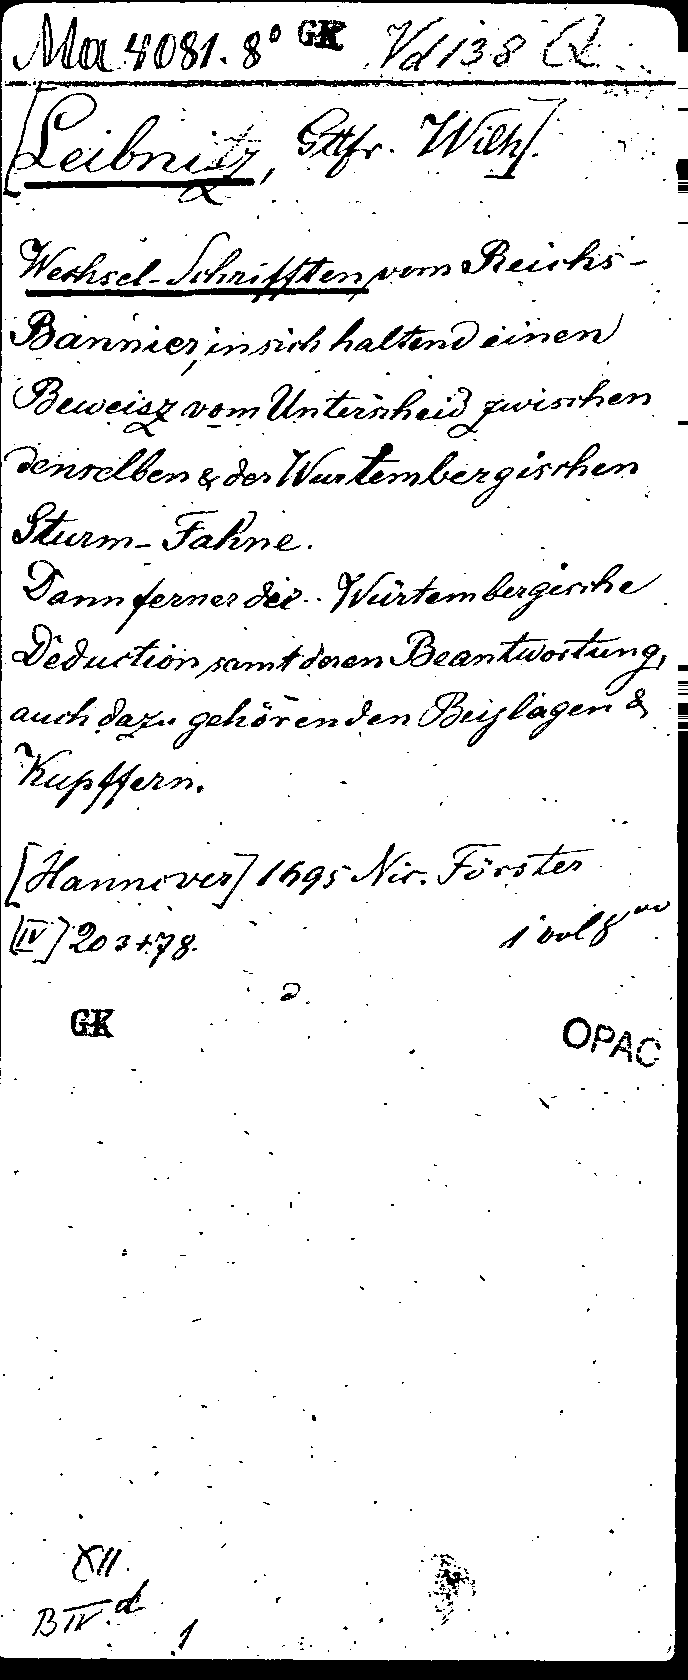 Ma 4081. 8° GK Vd 138 Q
[Leibnitz, Gttfr. Wilh].
Wechsel-Schrifften vom Reichs-
Bannier, in sich haltend einen
Beweisz vom Unterscheid zwischen
denselben & der Wurtembergischen
Sturm-Fahne.
Dann ferner die Würtembergische
Deduction samt deren Beantwortung,
auch dazu gehörenden Beylagen &
Kupffern.
[Hannover] 1695 Nic. Förster
[IV] 203+78. 1 vol 8vo
GK
OPAC
XII.
B IV. d
1